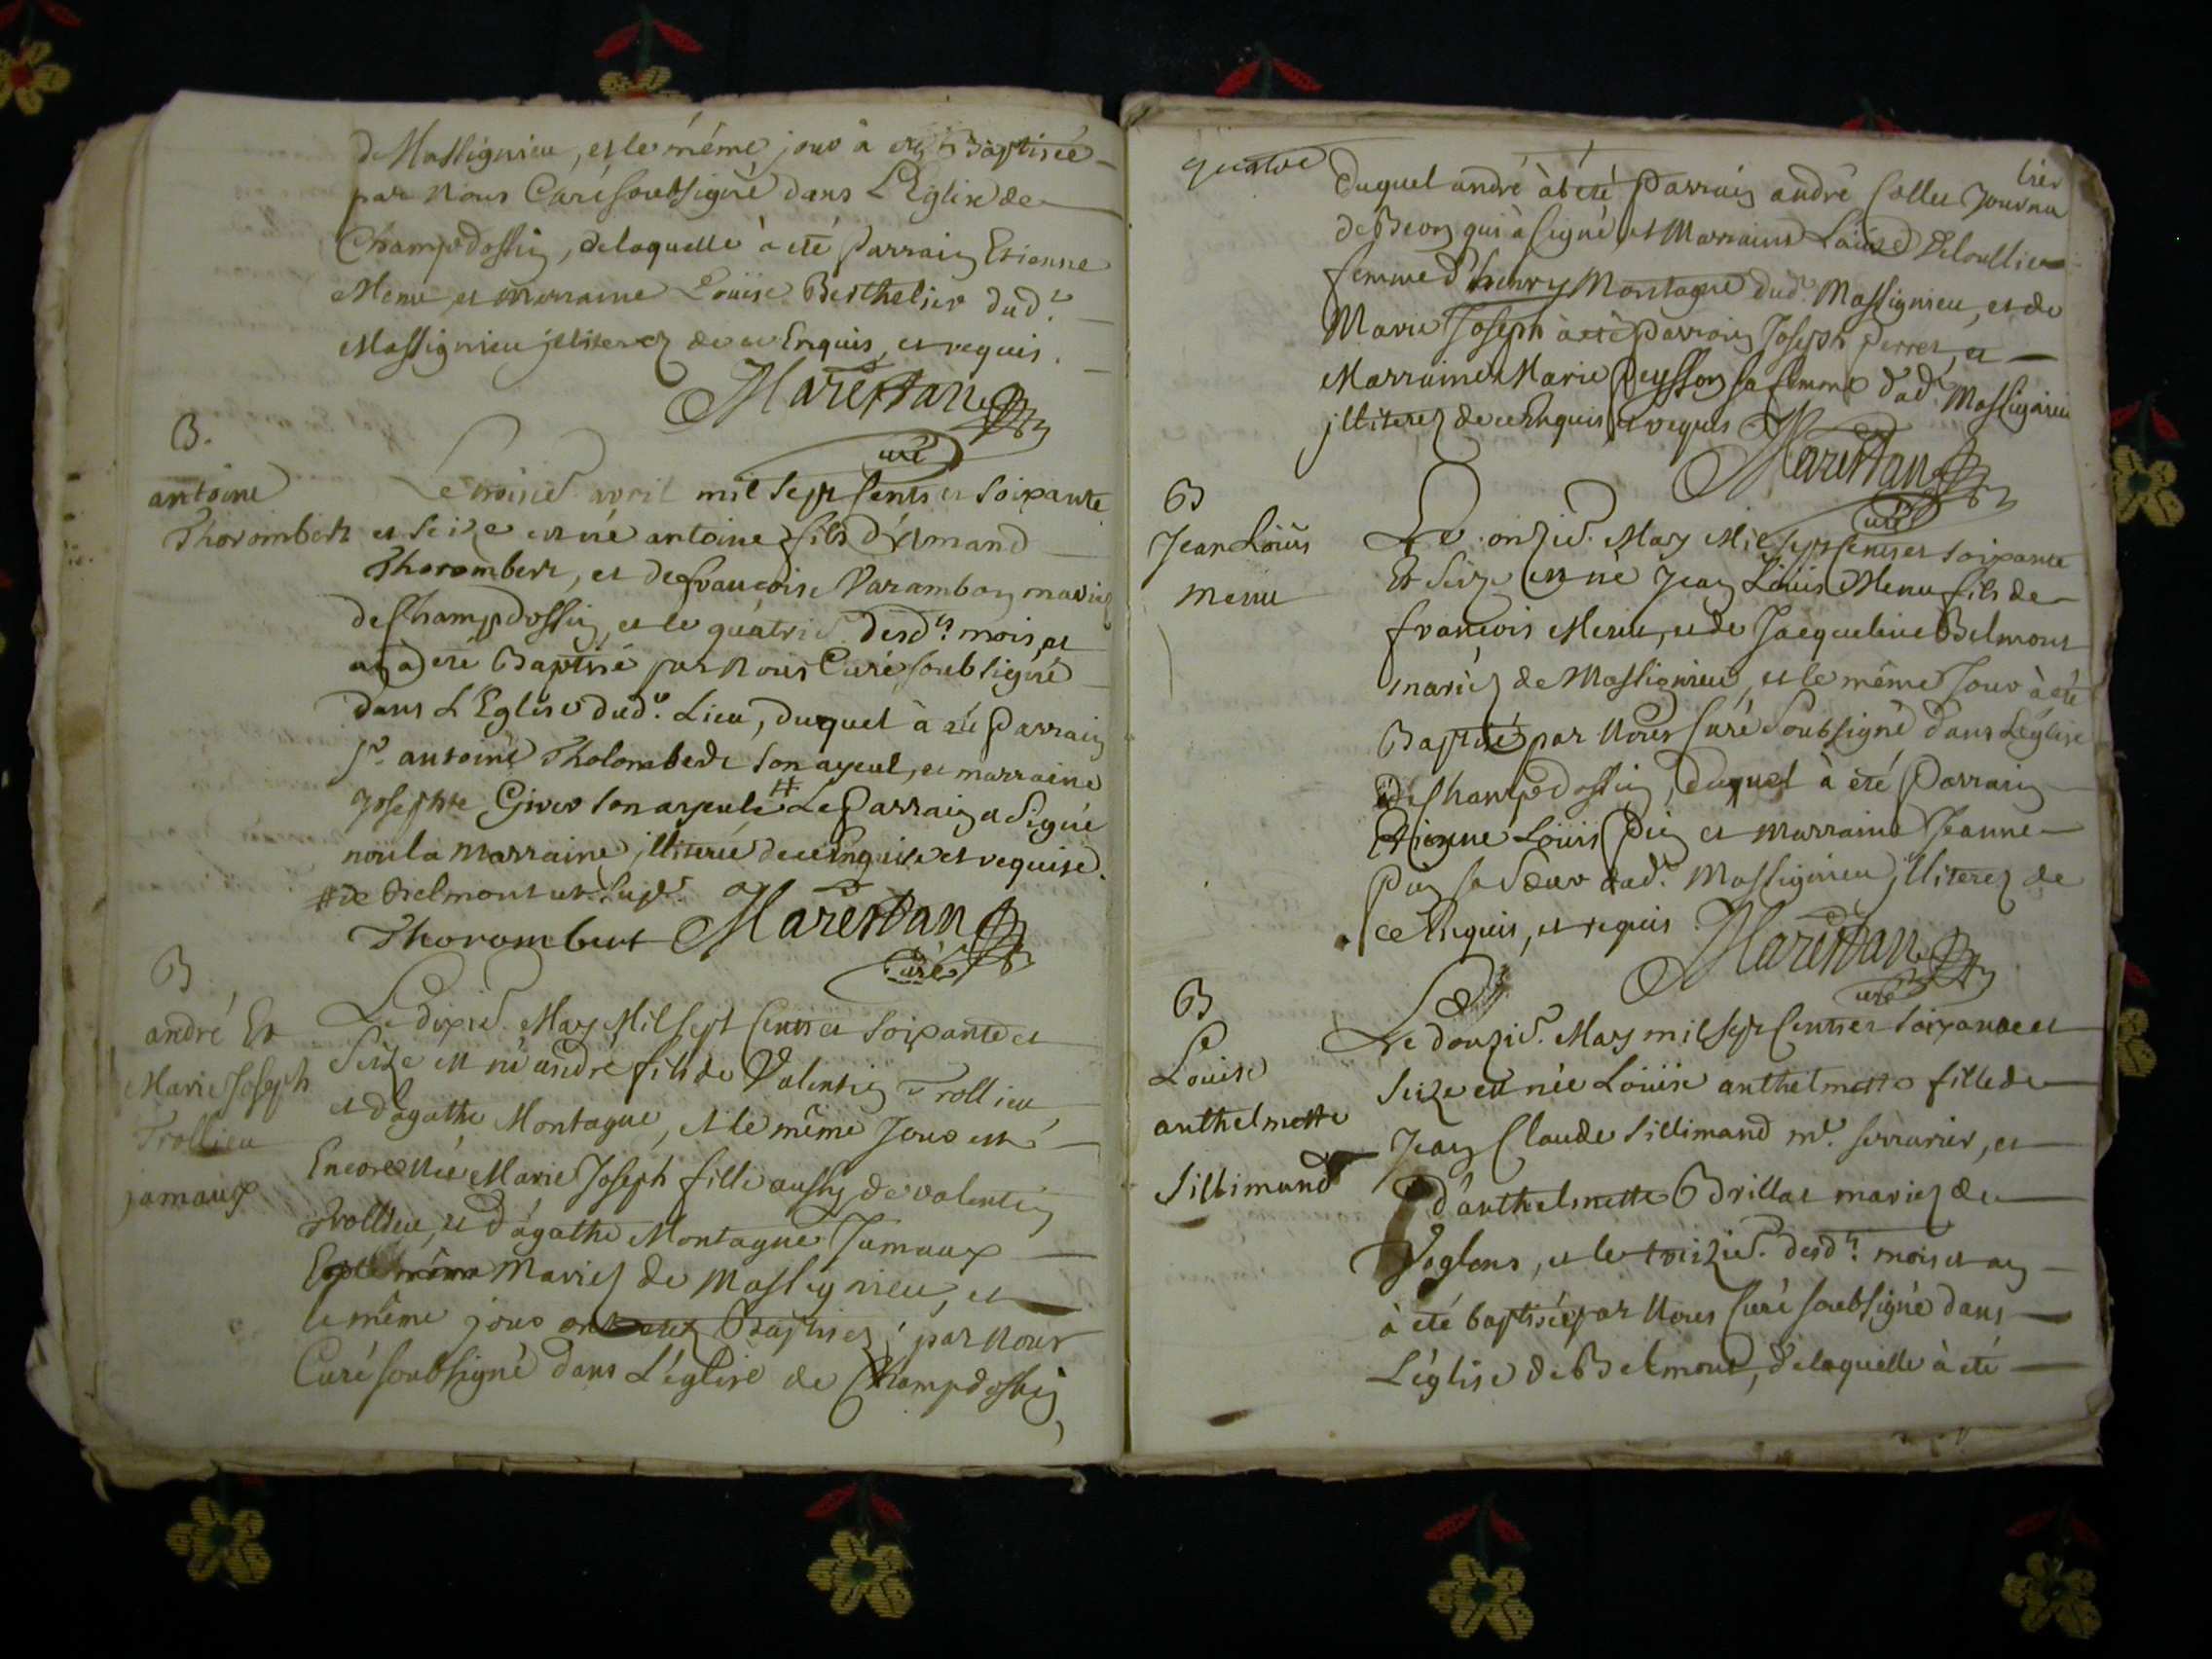 de Massignieu, et le même jour à été Baptisée
par Nous Curé soubsigné dans L'Eglise de
Champdossin, de laquelle à eté Parrain Etienne
Menu et marraine Loüise Berthelier dud.t
Massignieu illiterez de ce Enquis, et requis.
Marestan
curé
B.
antoine
Thorombert
Le troisie. avril mil sept cents et soixante
et seize est né antoine fils d'
Thorombert, et de françoise Varambon mariez
de Champdossin, et le quatrie. desd.ts mois et
an a eté Baptisé par Nous Curé soubsigné
dans L'Eglise dud. Lieu, duquel à eté Parrain
S.r antoine Tholombert son ayeul, et marraine
Josephte son ayeule # Le Parrain a Signé
non la Marraine illiterée de ce Enquise et requise.
# de Belmont
Thorombert Marestan
Curé
B
andré Et
Marie Joseph
Trollieu
jumaux
Le dixie. May Mil sept Cents et soixante et
Seize est né andré fils de Valentin Trollieu
et d'agathe Montagne, et le même Jour est
Encore Née Marie Joseph fille aussy de valentin
Trollieu, et d'agathe Montagne Jumaux
mariez de Massignieu, et
le même jour ont etez Baptisez par Nous
Curé soubsigné dans L'église de Champdossin,
quatre
duquel andré à été Parrain andré Collet Journalier
de Beon qui à signé et Marraine Loüise
femme d'henry Montagne dud. Massignieu, et de
Marie Joseph à eté Parrain Joseph Perret, et
Marraine Marie Peysson sa femme dud. Massignieu
illiterez de ce Enquis et requis
Marestan
curé
B
Jean Loüis
menu
Le onzie. May Mil sept Cents et soixante
Et Seize est né Jean Loüis Menu fils de
françois Menu, et de Jacqueline Belmont
mariez de Massignieu, et le même Jour à eté
Baptisé par Nous Curé Soubsigné dans L'église
de Champdossin, duquel à eté Parrain
Etienne Loüis Pin et marraine Jeanne
Pin sa Sœur dud. Massignieu illiterez de
ce Enquis, et requis
Marestan
curé
B
Louise
anthelmette
Sillimand
Le douzie. May mil sept Cents et soixante et
Seize est née Loüise anthelmette fille de
Jean Claude Sillimand m.e serrurier, et
d'anthelmette Brillat mariez de
Voglens, et le treizie. desd.ts mois et an
à eté baptisée par Nous Curé soubsigné dans
L'église de Belmont, de laquelle à eté